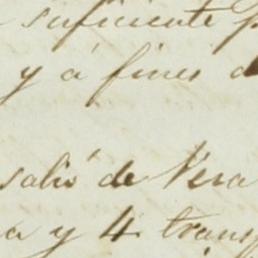 suficiente
y á fines
salió de Vera
a y 4 transp